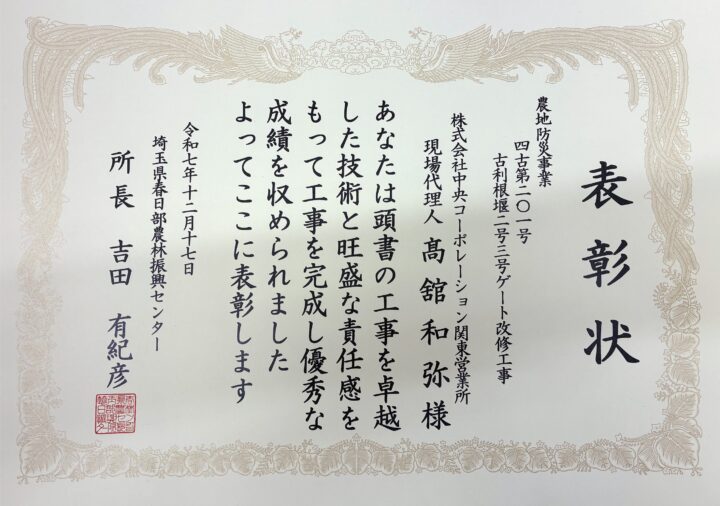 表彰状
農地防災事業
四古第二〇一号
古利根堰二号三号ゲート改修工事
株式会社中央コーポレーション関東営業所
現場代理人 髙舘和弥様
あなたは頭書の工事を卓越
した技術と旺盛な責任感を
もって工事を完成し優秀な
成績を収められました
よってここに表彰します
令和七年十二月十七日
埼玉県春日部農林振興センター
所長 吉田 有紀彦